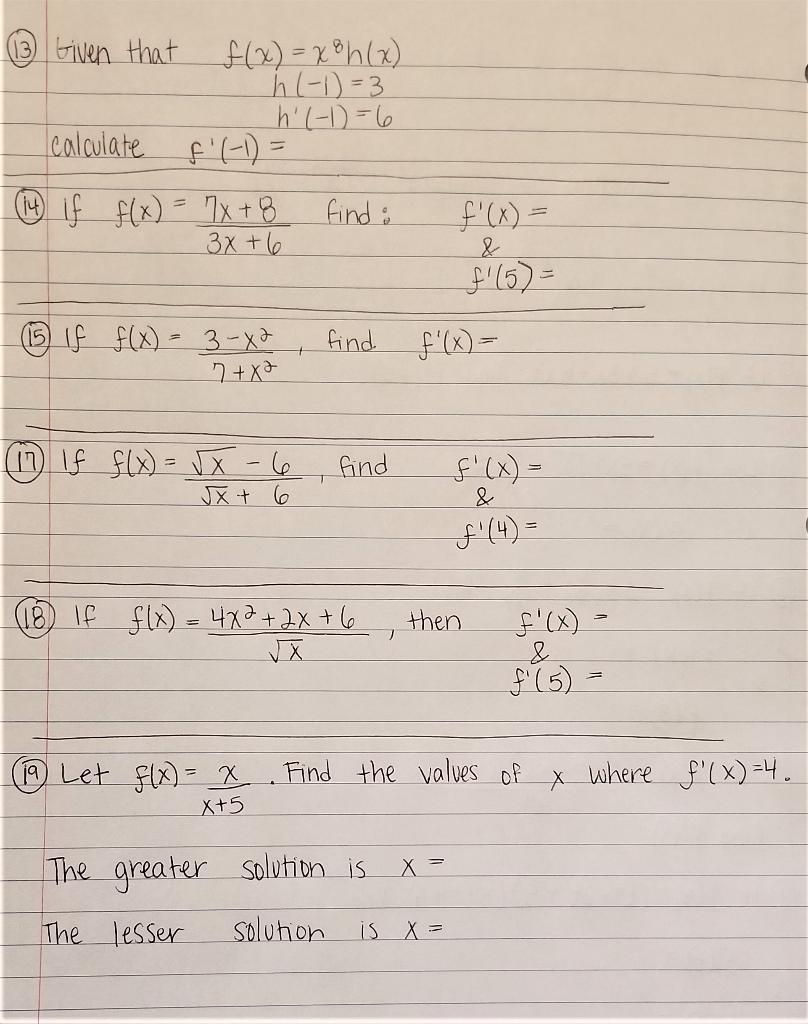 (13) Given that f(x) = x⁸h(x)
h(-1) = 3
h'(-1) = 6
calculate f'(-1) =
(14) If f(x) = 7x + 8 find: f'(x) =
3x + 6 &
f'(5) =
(15) If f(x) = 3 - x² , find f'(x) =
7 + x²
(17) If f(x) = √x - 6 , find f'(x) =
√x + 6 &
f'(4) =
(18) If f(x) = 4x² + 2x + 6 , then f'(x) =
√x &
f'(5) =
(19) Let f(x) = x . Find the values of x where f'(x) = 4.
x+5
The greater solution is x =
The lesser solution is x =